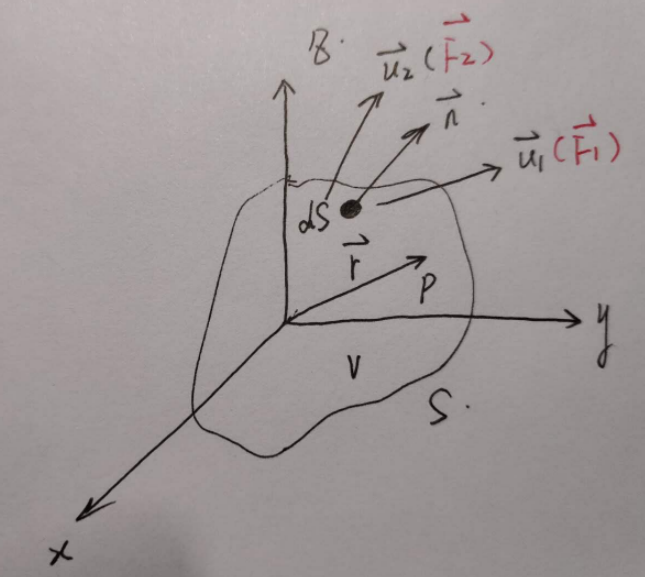 z.
u⃗₂(F⃗₂)
n⃗.
u⃗₁(F⃗₁)
dS
r⃗
P
y
V
S.
x